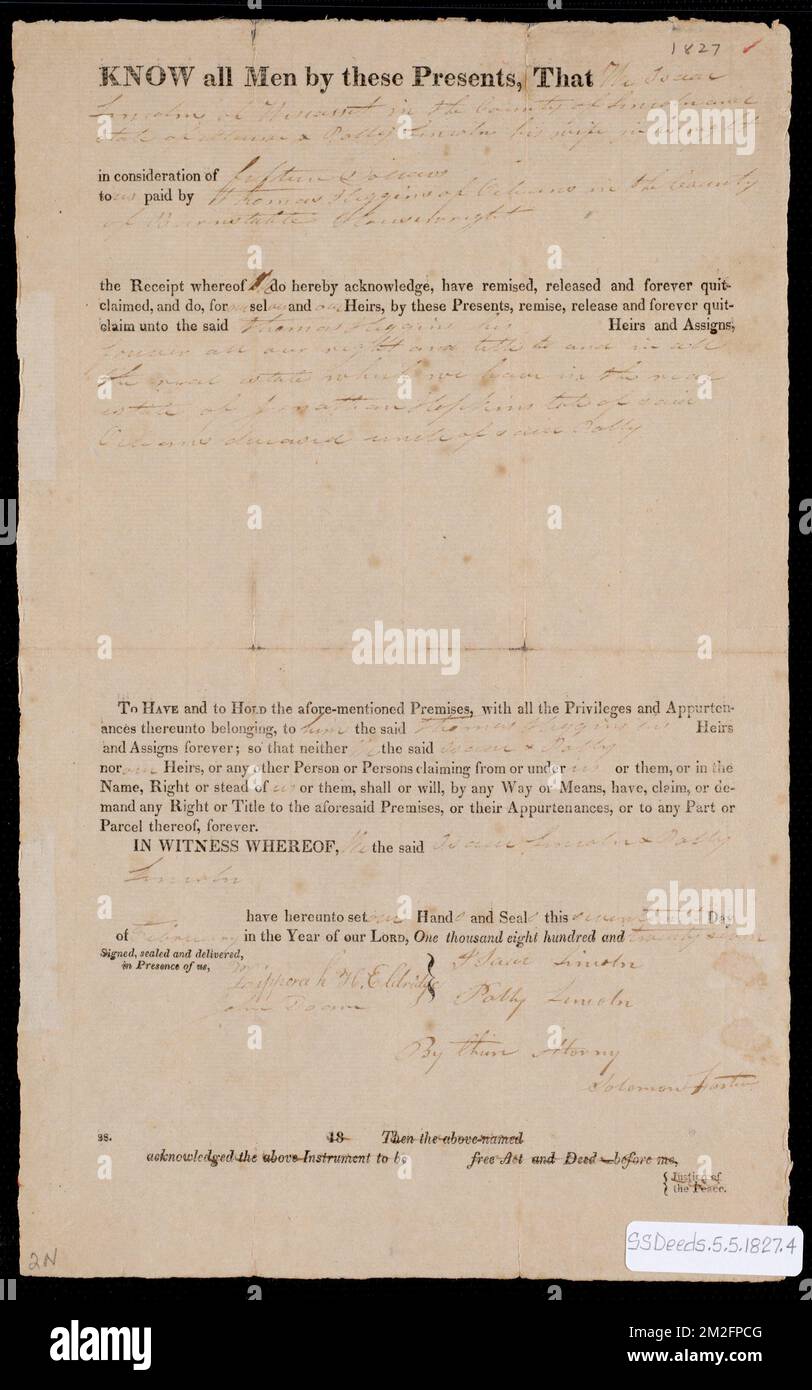 1827
KNOW all Men by these Presents, That We Isaac
Lincoln of Wiscasset in the County of Lincoln and
State of Maine & Polly Lincoln his wife in her right
in consideration of fifteen Dollars
to us paid by Thomas Higgins of Orleans in the County
of Barnstable Housewright
the Receipt whereof We do hereby acknowledge, have remised, released and forever quit-
claimed, and do, for our selves and our Heirs, by these Presents, remise, release and forever quit-
claim unto the said Thomas Higgins his Heirs and Assigns,
forever all our right and title to and in all
the real estate which we have in the real
estate of Jonathan Hopkins of said
Orleans deceased uncle of said Polly
To Have and to Hold the afore-mentioned Premises, with all the Privileges and Appurten-
ances thereunto belonging, to him the said Thomas Higgins his Heirs
and Assigns forever; so that neither We the said Isaac & Polly
nor our Heirs, or any other Person or Persons claiming from or under us or them, or in the
Name, Right or stead of us or them, shall or will, by any Way or Means, have, claim, or de-
mand any Right or Title to the aforesaid Premises, or their Appurtenances, or to any Part or
Parcel thereof, forever.
IN WITNESS WHEREOF, We the said Isaac Lincoln & Polly
Lincoln
have hereunto set our Hands and Seals this Day
of February in the Year of our Lord, One thousand eight hundred and twenty seven
Signed, sealed and delivered,
in Presence of us,
Isaac Lincoln
Zipporah H. Eldridge
Polly Lincoln
John Doane
By their Atorny
Solomon
ss. 18 Then the above-named
acknowledged the above Instrument to be free Act and Deed—before me,
Justice of
the Peace.
SSDeeds.5.5.1827.4
2N
alamy
Image ID: 2M2FPCG
www.alamy.com